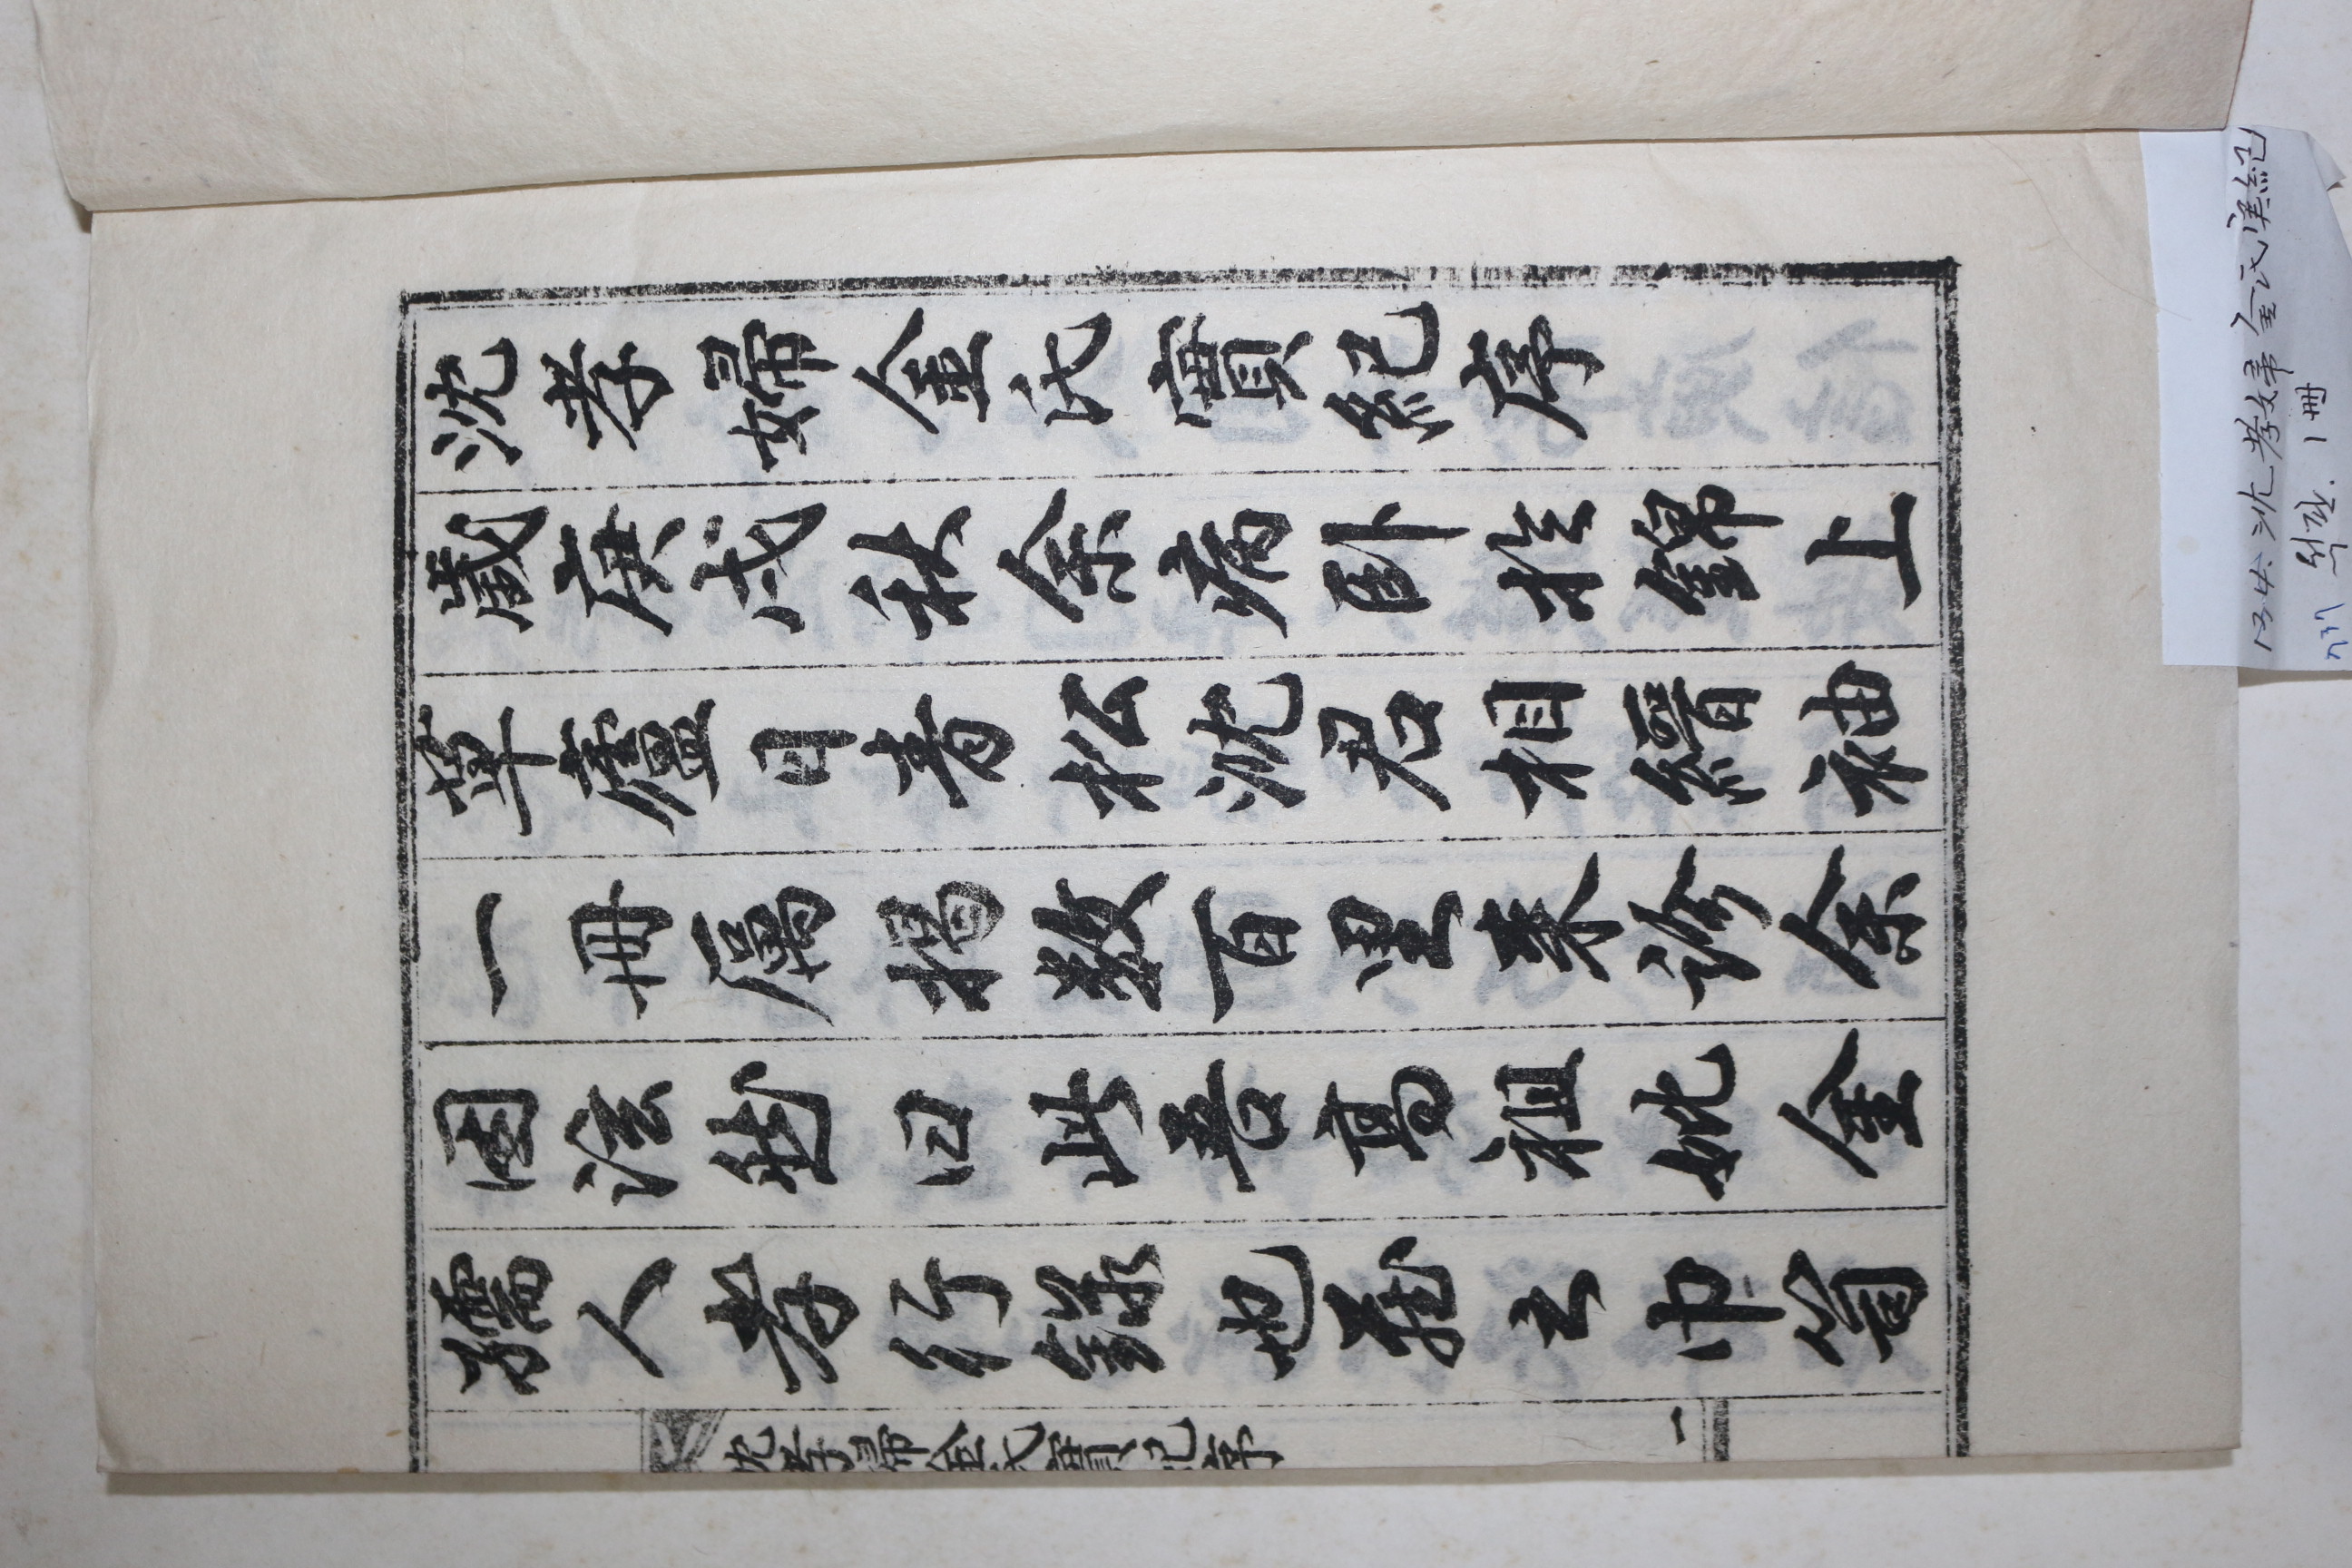 沈孝婦金氏實紀序
歲庚戌秋余病卧於錦上
草廬日青松沈君相縉袖
一冊属揭数百里来診余
因泫然曰此吾高祖妣金
孺人孝行錄也藏之巾笥
沈孝婦金氏實紀序
一
134. 沈孝婦金氏実紀
737 석판. 1冊